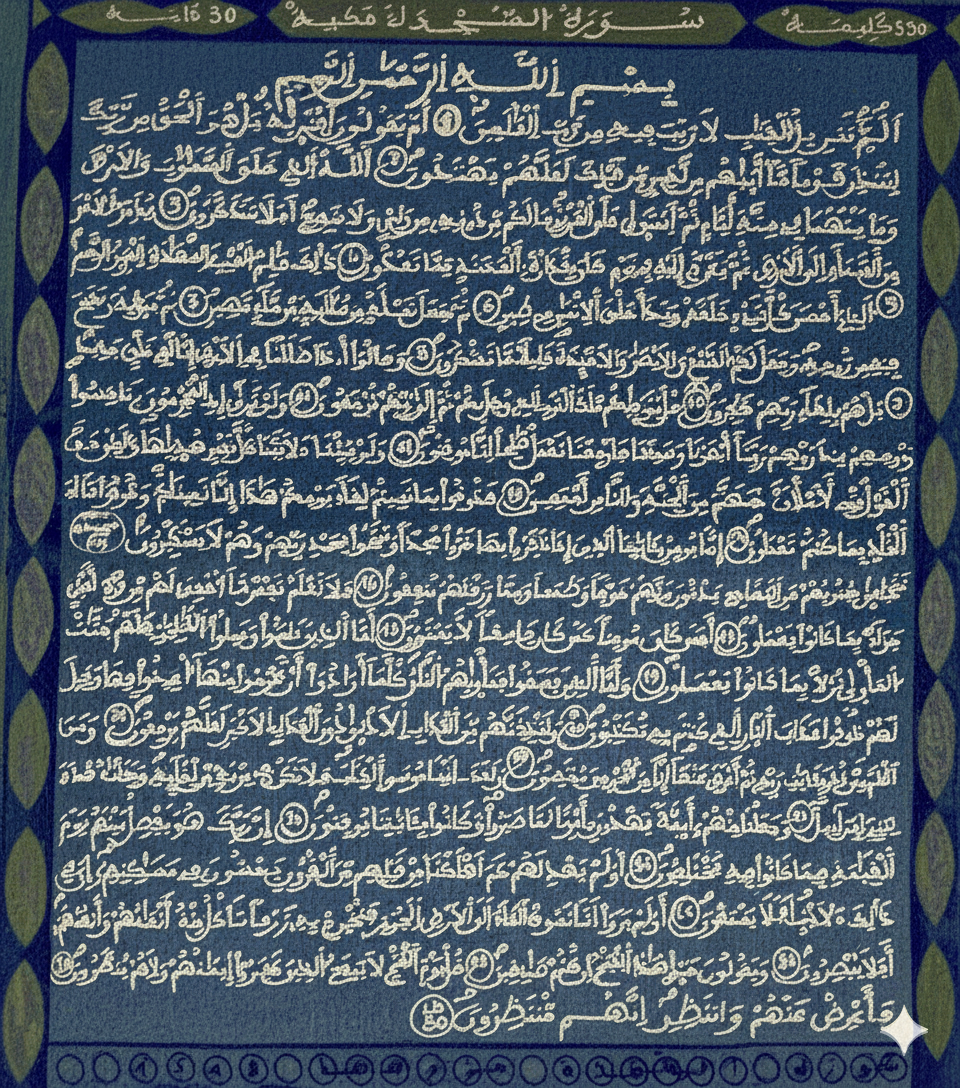 سورة السجدة مكية 30
بسم الله الرحمن الرحيم
ألم تنزيل الكتب لا ريب فيه من رب العلمين 1 أم يقولون افتريه بل هو الحق من ربك
لتنذر قوما ما أتيهم من نذير من قبلك لعلهم يهتدون 2 الله الذي خلق السموت والارض
وما بينهما في ستة أيام ثم استوى على العرش مالكم من دونه من ولي ولا شفيع أفلا تتذكرون 3 يدبر الامر
من السماء الى الارض ثم يعرج إليه في يوم كان مقداره ألف سنة مما تعدون ذلك علم الغيب والشهدة العزيز الرحيم
الذي أحسن كل شيء خلقه وبدأ خلق الانسن من طين ثم جعل نسله من سللة من ماء مهين ثم سويه ونفخ
فيه من روحه وجعل لكم السمع والابصر والافئدة قليلا ما تشكرون وقالوا أ.ذا ضللنا في الارض إنا لفي خلق
بل هم بلقاء ربهم كفرون قل يتوفيكم ملك الموت الذي وكل بكم ثم إلى ربكم ترجعون ولو ترى إذ المجرمون ناكسوا
رءوسهم عند ربهم ربنا أبصرنا وسمعنا فارجعنا نعمل صلحا انا موقنون ولو شئنا لاتينا كل نفس هديها ولكن حق
القول مني لأملأن جهنم من الجنة والناس أجمعين فذوقوا بما نسيتم لقاء يومكم هذا إنا نسينكم وذوقوا عذاب
الخلد بما كنتم تعملون إنما يومن بـايتنا الذين إذا ذكروا بها خروا سجدا وسبحوا بحمد ربهم وهم لا يستكبرون
تتجافى جنوبهم عن المضاجع يدعون ربهم خوفا وطمعا ومما رزقنهم ينفقون فلا تعلم نفس ما أخفي لهم من قرة أعين
جزاء بما كانوا يعملون أفمن كان مومنا كمن كان فاسقا لا يستوون أما الذين ءامنوا وعملوا الصلحت فلهم جنت
المأوى نزلا بما كانوا يعملون وأما الذين فسقوا فمأويهم النار كلما أرادوا أن يخرجوا منها أعيدوا فيها وقيل
لهم ذوقوا عذاب النار الذي كنتم به تكذبون ولنذيقنهم من العذاب الادنى دون العذاب الاكبر لعلهم يرجعون ومن
أظلم ممن ذكر بـايت ربه ثم أعرض عنها إنا من المجرمين منتقمون ولقد ءاتينا موسى الكتب فلا تكن في مرية من لقائه وجعلنه هدى
لبني إسرائيل وجعلنا منهم أئمة يهدون بأمرنا لما صبروا وكانوا بـايتنا يوقنون إن ربك هو يفصل بينهم يوم
القيمة فيما كانوا فيه يختلفون أولم يهد لهم كم أهلكنا من قبلهم من القرون يمشون في مسكنهم إن في
ذلك لأيت أفلا يسمعون أولم يروا أنا نسوق الماء الى الارض الجرز فنخرج به زرعا تأكل منه أنعمهم وأنفسهم
أفلا يبصرون ويقولون متى هذا الفتح إن كنتم صدقين قل يوم الفتح لا ينفع الذين كفروا إيمنهم ولا هم ينظرون
وأعرض عنهم وانتظر انهم منتظرون